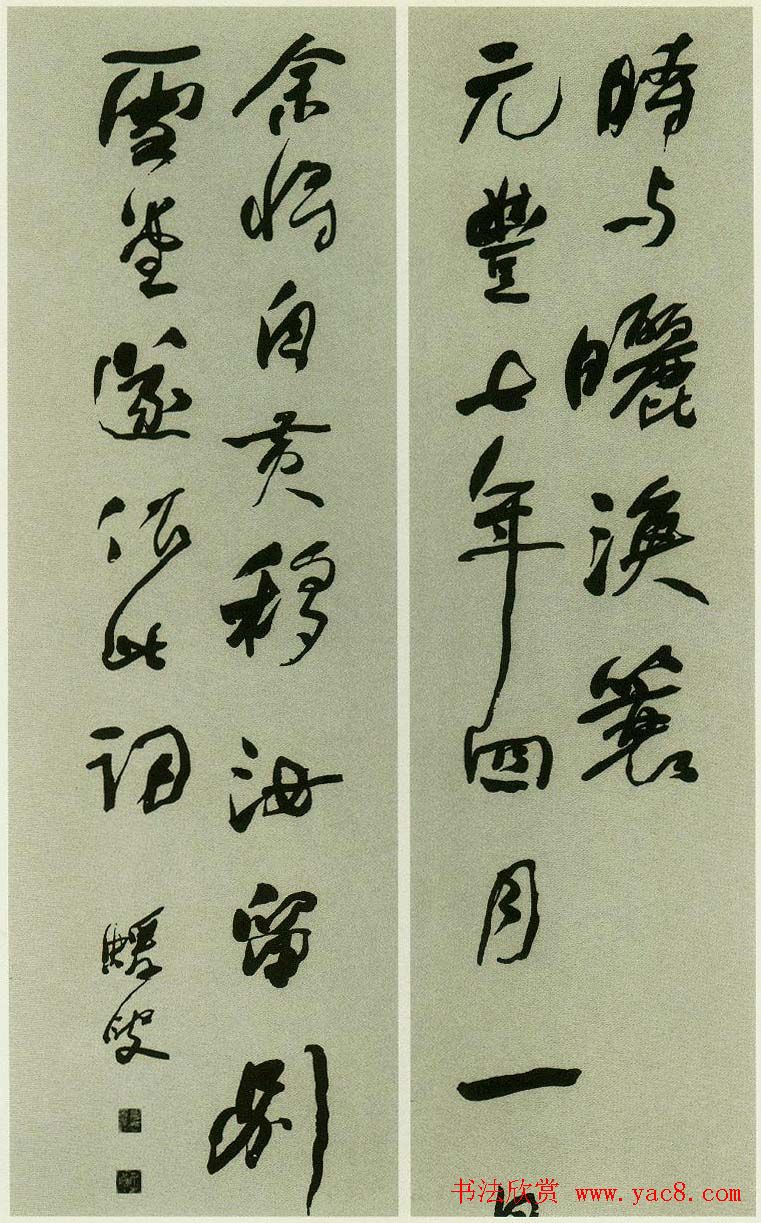 時与曬漁蓑
元豐七年四月一日
余将自黄移汝留别
雪堂遂作此詞
蝯叟
书法欣赏 www.yac8.com